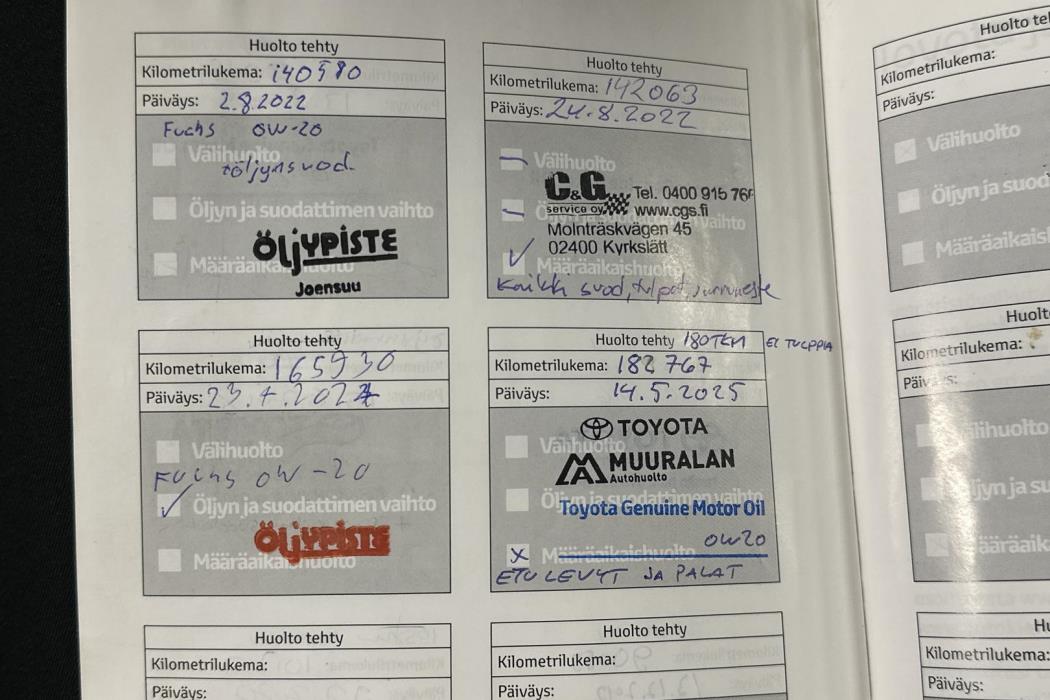 Huolto tehty
Kilometrilukema: 140580
Päiväys: 2.8.2022
Fuchs 0W-20
Välihuolto
+öljynsuod.
Öljyn ja suodattimen vaihto
ÖljYPiSTE
Joensuu
Huolto tehty
Kilometrilukema: 142063
Päiväys: 24.8.2022
Välihuolto
C&G
service oy
Tel. 0400 915 766
www.cgs.fi
Molnträskvägen 45
02400 Kyrkslätt
Määräaikaishuolto
Kaikk suod, tulpat, jarruneste
Huolto tehty
Kilometrilukema: 165930
Päiväys:
Välihuolto
Fuchs 0W-20
Öljyn ja suodattimen vaihto
ÖljYPiSTE
Määräaikaishuolto
Huolto tehty 180TKM EI TULPPIA
Kilometrilukema: 182 767
Päiväys: 14.5.2025
Välihuolto
TOYOTA
MUURALAN
Autohuolto
Öljyn ja suodattimen vaihto
Toyota Genuine Motor Oil
0W20
x Määräaikaishuolto
ETU LEVYT JA PALAT
Huolto tehty
Kilometrilukema:
Päiväys:
Huolto tehty
Kilometrilukema:
Päiväys:
Huolto te
Kilometrilukema:
Päiväys:
Välihuolto
Öljyn ja suod
Määräaikais
Huolt
Kilometrilukema:
Kilometrilukema:
Päiväys: